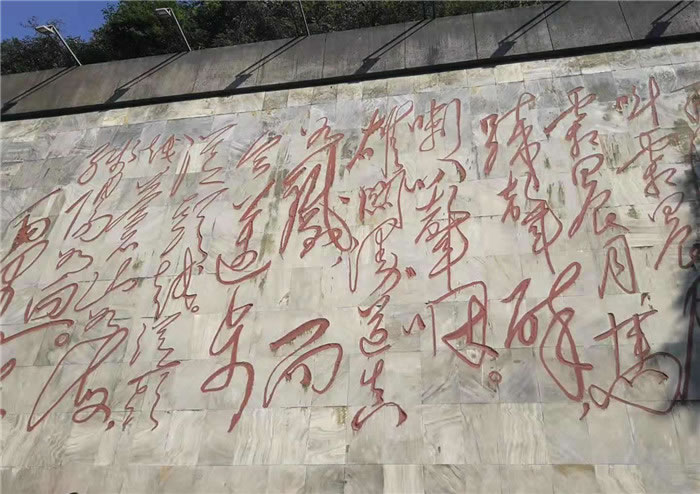 叫霜晨
霜晨月，马
蹄声碎，
喇叭声咽。
雄关漫道真
如铁，而
今迈步
从头越。从头
越，苍山如海，
残阳如血。